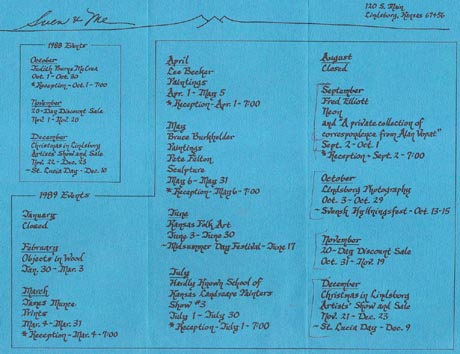 Sven & Me
120 S. Main
Lindsborg, Kansas 67456
1988 Events
October
Judith Burns McCrea
Oct. 1 - Oct. 30
*Reception - Oct. 1 - 7:00
November
20-Day Discount Sale
Nov. 1 - Nov. 20
December
Christmas in Lindsborg
Artists' Show and Sale
Nov. 22 - Dec. 23
- St. Lucia Day - Dec. 10
1989 Events
January
Closed
February
Objects in Wood
Jan. 30 - Mar. 3
March
James Munce
Prints
Mar. 4 - Mar. 31
*Reception - Mar. 4 - 7:00
April
Leo Becker
Paintings
Apr. 1 - May 5
*Reception - Apr. 1 - 7:00
May
Bruce Burkholder
Paintings
Pete Felton
Sculpture
May 6 - May 31
*Reception - May 6 - 7:00
June
Kansas Folk Art
June 3 - June 30
- Midsummer Day Festival - June 17
July
Hardly Known School of
Kansas Landscape Painters
Show #3
July 1 - July 30
*Reception - July 1 - 7:00
August
Closed
September
Fred Elliott
Neon
and "A private collection of
correspondence from Alan
Sept. 2 - Oct. 1
*Reception - Sept. 2 - 7:00
October
Lindsborg Photography
Oct. 3 - Oct. 29
- Svensk Hyllningsfest - Oct. 13-15
November
20-Day Discount Sale
Oct. 31 - Nov. 19
December
Christmas in Lindsborg
Artists' Show and Sale
Nov. 21 - Dec. 23
- St. Lucia Day - Dec. 9